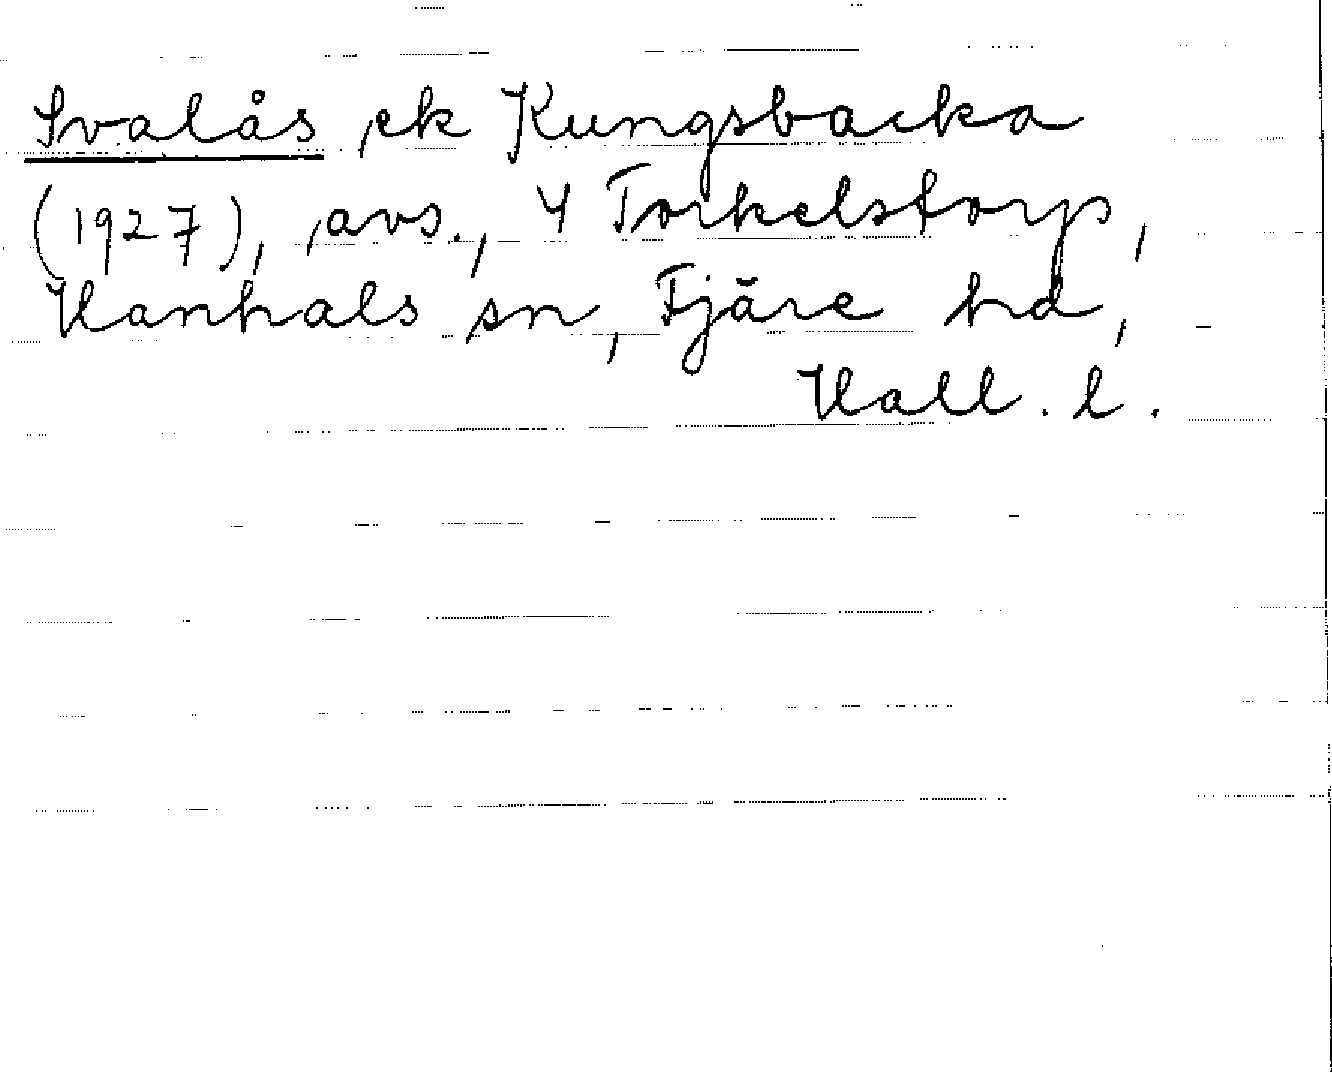 Svalås, ek Kungsbacka
(1927), avs., 4 Torkelstorp,
Hanhals sn, Fjäre hd,
Hall. l.